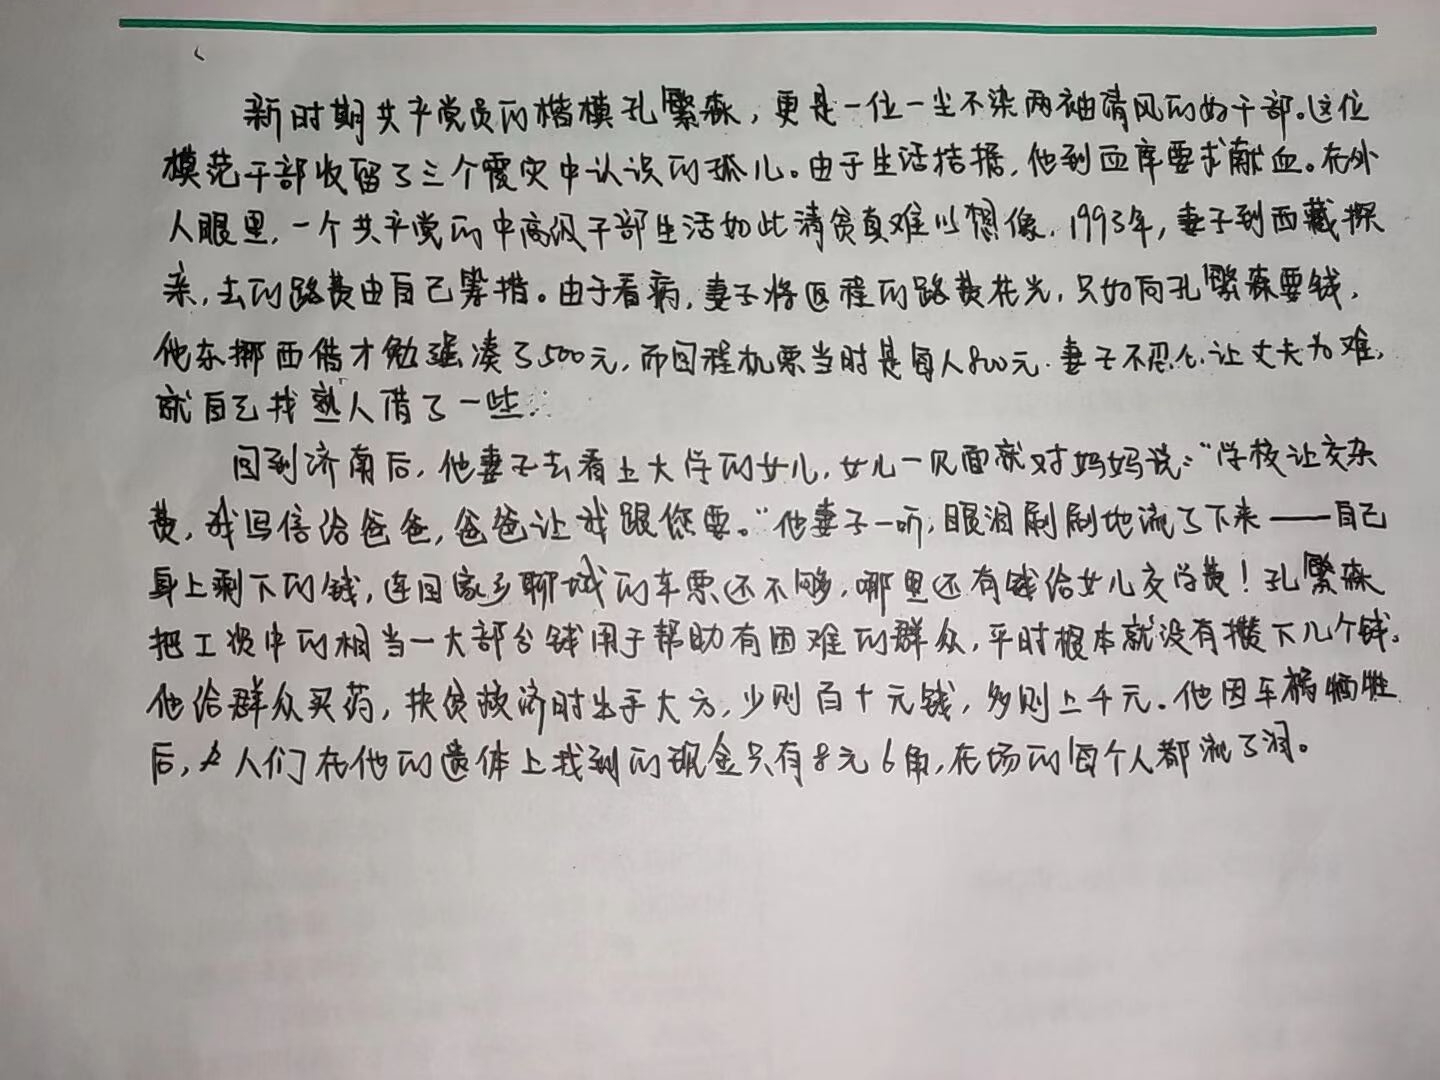 新时期共产党员的楷模孔繁森，更是一位一尘不染两袖清风的好干部。这位
模范干部收留了三个震灾中认识的孤儿。由于生活拮据，他到血库要求献血。在外
人眼里，一个共产党的中高级干部生活如此清贫真难以想像。1993年，妻子到西藏探
亲，去的路费由自己筹措。由于看病，妻子将返程的路费花光，只好向孔繁森要钱，
他东挪西借才勉强凑了500元，而回程机票当时是每人800元。妻子不忍心让丈夫为难，
就自己找熟人借了一些。
回到济南后，他妻子去看上大学的女儿，女儿一见面就对妈妈说："学校让交杂
费，我写信给爸爸，爸爸让我跟您要。"他妻子一听，眼泪刷刷地流了下来——自己
身上剩下的钱，连回家乡聊城的车票还不够，哪里还有钱给女儿交学费！孔繁森
把工资中的相当一大部分钱用于帮助有困难的群众，平时根本就没有攒下几个钱。
他给群众买药，扶贫救济时出手大方，少则百十元钱，多则上千元。他因车祸牺牲
后，人们在他的遗体上找到的现金只有8元6角，在场的每个人都流了泪。